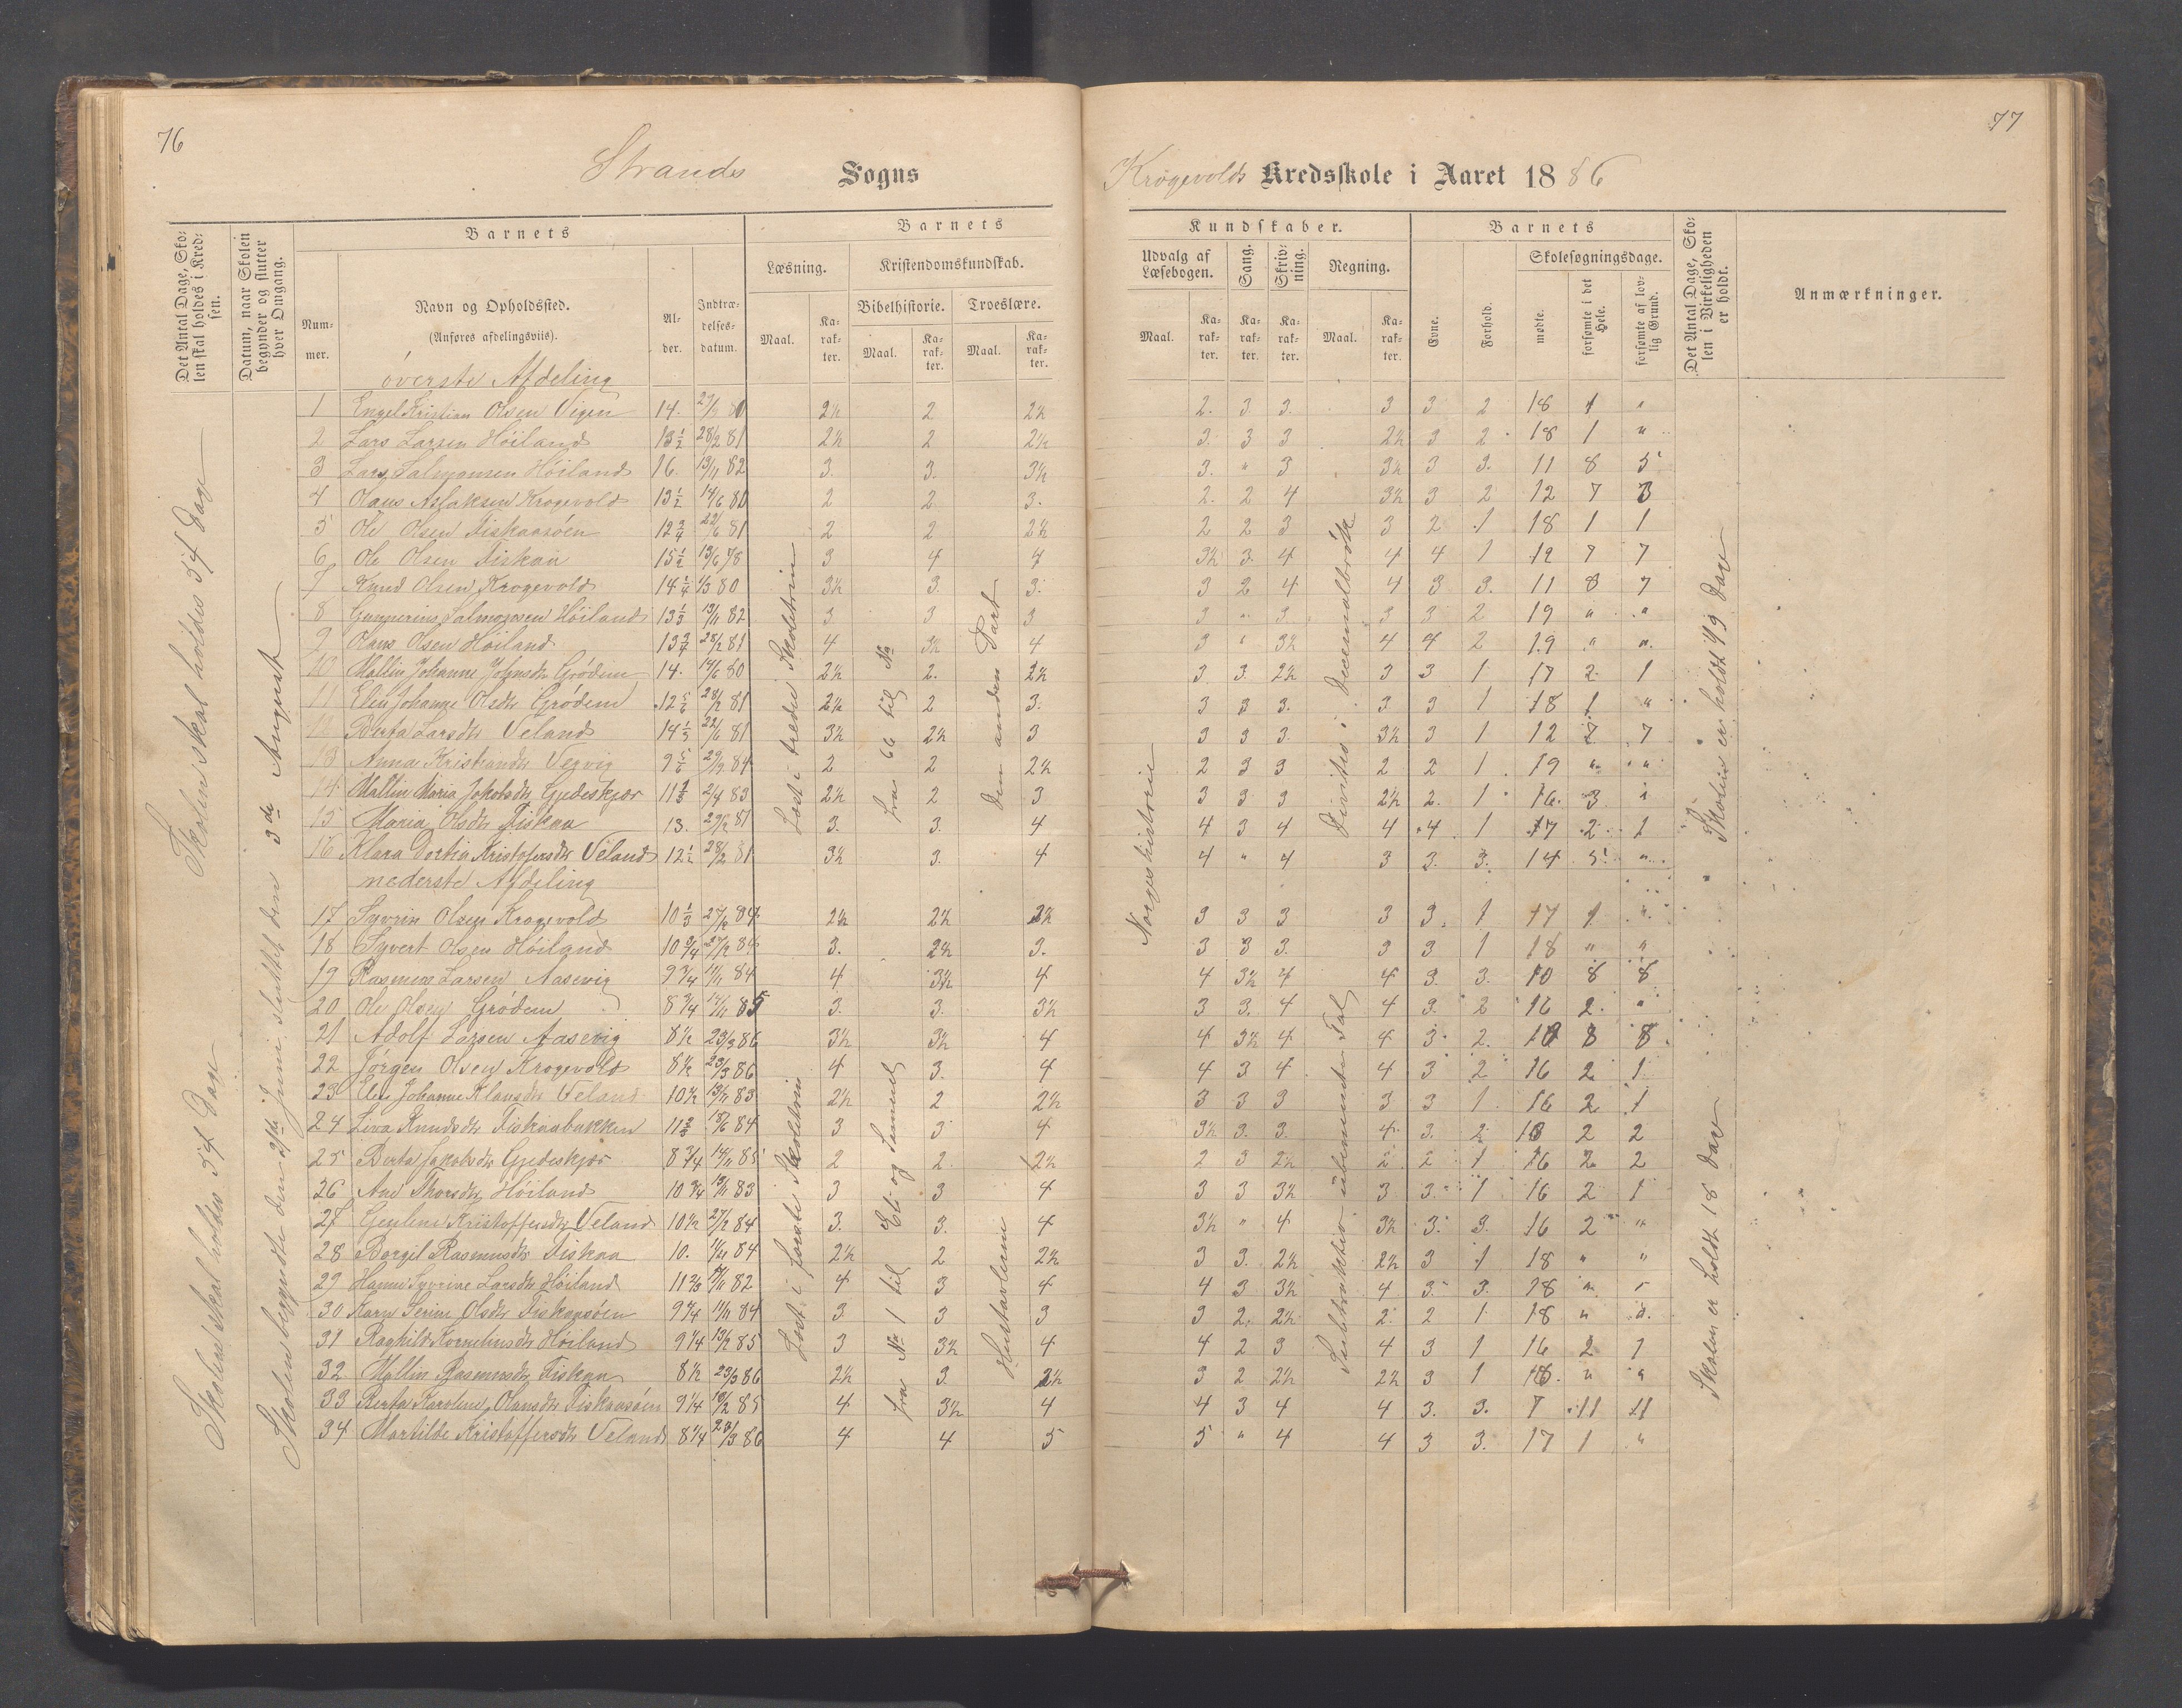 76
Strands Sogns
Det Antal Dage, Skolen skal holdes i Kredsen.
Datum, naar Skolen begynder og slutter hver Omgang.
Barnets
Nummer.
Navn og Opholdssted.
(Anføres afdelingsviis).
Alder.
Indtrædelsesdatum.
Barnets
Læsning.
Kristendomskundskab.
Bibelhistorie. Troeslære.
Maal. Karakter. Maal. Karakter. Maal. Karakter.
Skolen skal holdes 54 Dage
Skolen skal holdes 54 Dage
Skolen begyndte den 2den Juni, sluttet den 3de August
Læst i tredie Skoletrin
fra 66 til No
den anden Part
Læst i første Skoletrin
fra No 1 til Eli og Samuel
Hustavlerne
øverste Afdeling
1 Engel Kristian Olsen Vigen 14. 2½ 2 2½
2 Lars Larsen Høiland 13½ 28/2 81 2½ 2 2½
3 Lars Salmonsen Høiland 16 13/11 82 3. 3. 3½
4 Olaus Aslaksen Krogevold 13½ 14/6 80 2 2 3.
5 Ole Olsen Fiskaasøen 12¾ 22/6 81 2 2 2½
6 Ole Olsen Fiskaa 15½ 13/6 78 3 4 4
7 Knud Olsen Krogevold 14¼ 1/3 80 3½ 3. 3.
8 Gunnerius Salmonsen Høiland 13⅓ 13/11 82 3 3 3
9 Hans Olsen Høiland 13¾ 28/2 81 4 3½ 4
10 Mallin Johanne Johnsdtr Grødem 14. 14/6 80 2½ 2. 2½
11 Elen Johanne Olsdtr Grødem 12 5/6 28/2 81 2½ 2 3.
12 Berta Larsdtr Veland 14⅓ 22/6 81 3½ 2½ 3
13 Anna Kristiansdtr Vervig 9 5/6 84 2 2 2½
14 Mallin Maria Jakobsdtr Gjedeskjær 11⅔ 2/4 83 2½ 2 3
15 Maria Olsdtr Fiskaa 13. 81 3. 3. 4
16 Klara Dortia Kristofersdtr Veland 12½ 28/2 81 3½ 3. 4
nederste Afdeling
17 Syvrin Olsen Krogevold 10⅓ 27/2 84 2½ 2½ 2½
18 Syvert Olsen Høiland 10¾ 27/2 84 3. 2½ 3.
19 Rasmus Larsen Aasevig 9¾ 11/11 84 4 3½ 4
20 Ole Olsen Grødem 8¾ 14/11 85 3. 3. 3½
21 Adolf Larsen Aasevig 8½ 23/3 86 3½ 3½ 4
22 Jørgen Olsen Krogevold 8½ 23/3 86 4 3. 4
23 Elen Johanne Klausdtr Veland 10½ 13/11 83 2½ 2 2½
24 Liva Knudsdtr Fiskaabakken 11⅔ 18/6 84 3 3 4
25 Berta Jakobsdtr Gjedeskjær 8¾ 14/11 85 2 2. 2½
26 Ane Thorsdtr Høiland 10¾ 13/11 83 3 3 4
27 Kristoffersdtr Veland 10½ 27/2 84 3. 3. 4
28 Borgil Rasmusdtr Fiskaa 10. 11/11 84 2½ 2 2½
29 Hanne Syvrine Larsdtr Høiland 11⅔ 82 4 3 4
30 Karn Serine Olsdtr Fiskaasøen 9¾ 11/11 84 3 3 3
31 Raghild Kornelinsdtr Høiland 9¼ 13/2 85 3 3½ 4
32 Mallin Rasmusdtr Fiskaa 8½ 23/3 86 2½ 3. 2½
33 Berta Karoline Olausdtr Fiskaasøen 9¼ 13/2 85 4 3½ 4
34 Martilde Kristoffersdtr Veland 8¼ 23/3 86 4 4 5
77
Krogevolds Kredsskole i Aaret 1886
Kundskaber.
Udvalg af Læsebogen.
Sang.
Skrivning.
Regning.
Maal. Karakter. Karakter. Karakter. Maal. Karakter.
Barnets
Evne.
Forhold.
Skolesøgningsdage.
mødte.
forsømte i det Hele.
forsømte af lovlig Grund.
Det Antal Dage, Skolen i Virkeligheden er holdt.
Anmærkninger.
Norgeshistorie
Division i Decemalbrøk
Subtraktion ubenævnte Tal
Skolen er holdt 19 Dage
Skolen er holdt 18 Dage
2. 3. 3. 3 3 2 18 1 "
3. 3 3 2½ 3 2 18 1 "
3. " 3 3½ 3 3. 11 8 5
2. 2 4 3½ 3 2 12 7 3
2 2 3 3 2 1 18 1 1
3½ 3. 4 4 4 1 12 7 7
3 2 4 4 3 3. 11 8 7
3 " 3 3 3 2 19 " "
3 " 3½ 4 4 2 19 " "
3. 3. 2½ 3 3 1 17 2 1
3 3 3. 3 3 1 18 1 "
3 3 3. 3½ 3 1 12 7 7
2 3 3 2 2 1 19 " "
3 3 3 2½ 2. 1 16 3 1
4 3 4 4 4 1 17 2 1
4 " 4 3 3. 3. 14 5 "
3 3 3 3 3. 1 17 1 "
3 3 3. 3 3 1 18 " "
4 3½ 4 4 3. 3. 10 8 8
3 3. 4 4 3. 2 16 2 "
4 3½ 4 4 3 2. 10 8 8
4 3 4 4 3 2 16 2 1
3 3 3 3 3 1 16 2 1
3½ 3. 3. 4 3. 2 16 2 2
2 3 2½ 2 2 1 16 2 2
3 3 3½ 3 3 1 16 2 1
3½ " 4 3½ 3. 3. 16 2 "
3 3. 2½ 2½ 3 1 18 " "
4 3 3½ 4 3 3. 18 " "
3 2 2½ 2 2 1 18 " "
4 2 3 4 3 1 16 2 1
3 2 2½ 2½ 3 1 18. " "
4 3 4 4 3. 3. 7 11 11
5 " 4 4 3 3. 17 1 "